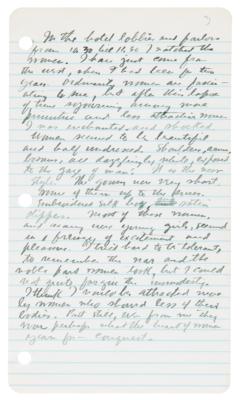 In the hotel lobbies and parlors
from 10.30 till 11.30 I watched the
women. I have just come from
the west, where I had been for two
years. Ordinarily women are fascin-
ating to me, but after this lapse
of time sojourning among more
primitive and less attractive
I was enchanted and shocked
Women seemed to be beautiful
and half undressed. Shoulders, arms,
bosoms, are dazzlingly white, exposed
to the gaze of man. It is the new
style. The gowns were very short,
some of them up to the knees.
Embroidered silk satin
slippers. Most of these women,
and many were young girls, seemed
in a frenzy of excitement and
pleasure. I tried hard to be tolerant,
to remember the war and the
noble part women took, but I could
not quite forgive the immodesty.
I think I would be attracted more
by women who showed less of their
bodies. But still, far from me they
were perhaps what the heart of women
yearn for - conquest.